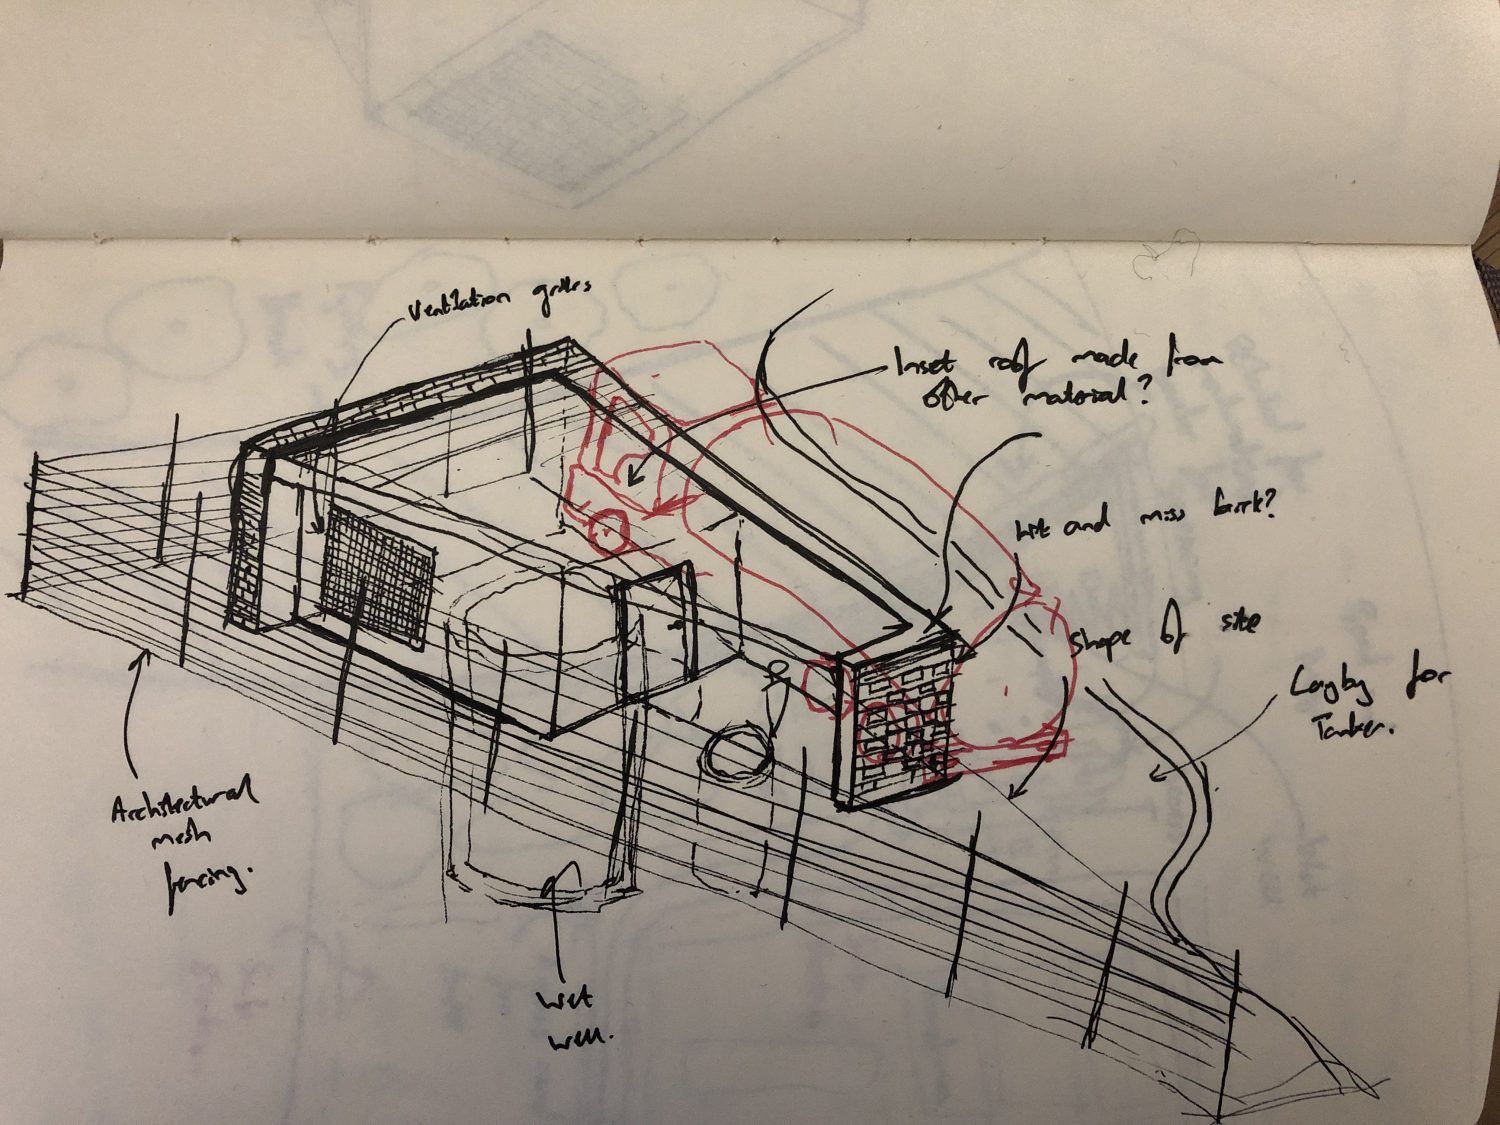 Ventilation grilles
Inset roof made from
other material?
hit and miss brick?
Shape of site
Layby for
Tanker.
Architectural
mesh
fencing.
Wet
well.